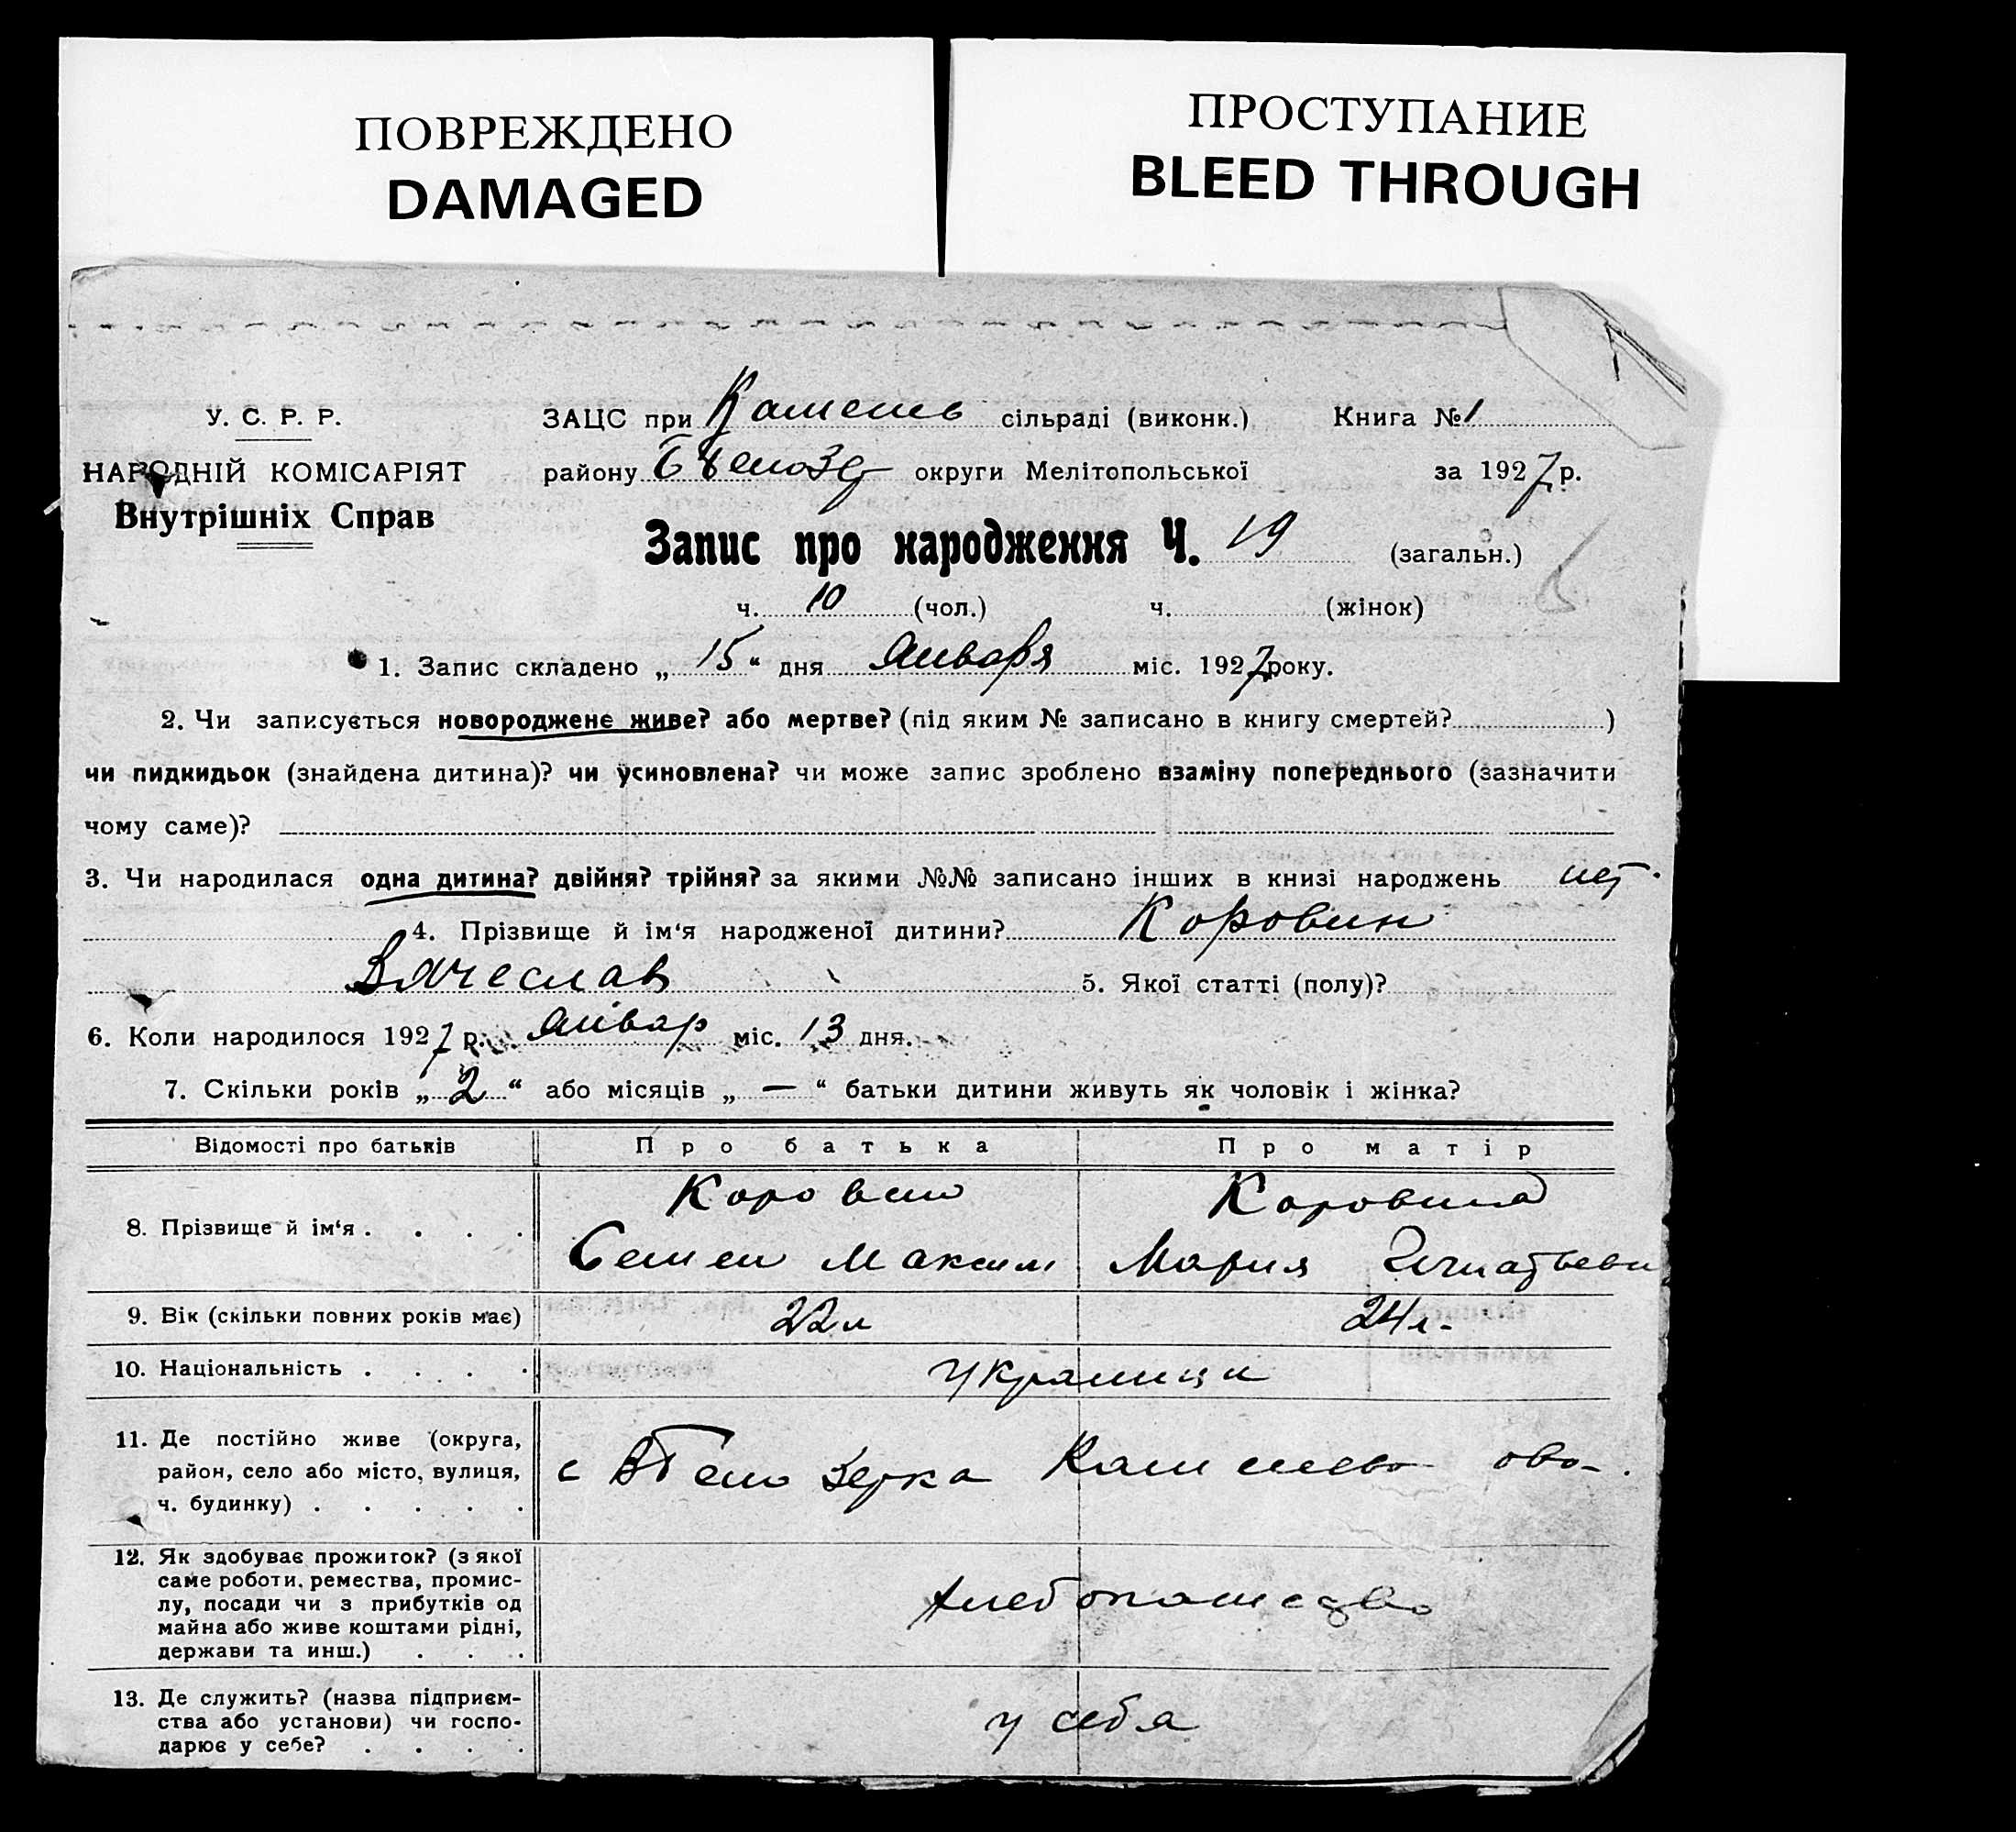 ПОВРЕЖДЕНО
DAMAGED
ПРОСТУПАНИЕ
BLEED THROUGH
У. С. Р. Р.
НАРОДНІЙ КОМІСАРІЯТ
Внутрішніх Справ
ЗАЦС при сільраді (виконк.) Книга № 1
району округи Мелітопольської за 1927 р.
Запис про народження Ч. 19 (загальн.)
ч. 10 (чол.) ч. (жінок)
1. Запис складено „ 15 “ дня Января міс. 1927 року.
2. Чи записується новороджене живе? або мертве? (під яким № записано в книгу смертей? )
чи пидкидьок (знайдена дитина)? чи усиновлена? чи може запис зроблено взаміну попереднього (зазначити
чому саме)?
3. Чи народилася одна дитина? двійня? трійня? за якими №№ записано інших в книзі народжень нет
4. Прізвище й ім'я народженої дитини? Коровин
Вячеслав 5. Якої статті (полу)?
6. Коли народилося 1927 р. Январ міс. 13 дня.
7. Скільки років „ 2 “ або місяців „ — “ батьки дитини живуть як чоловік і жінка?
Відомості про батьків Про батька Про матір
8. Прізвище й ім‘я . . . . Коровин Коровина
Семен Максим Мария Игнатьевн
9. Вік (скільки повних років має) 22 л 24 л.
10. Національність . . . . украинци
11. Де постійно живе (округа,
район, село або місто, вулиця,
ч. будинку) . . . . .
с
12. Як здобуває прожиток? (з якої
саме роботи, ремества, промис-
лу, посади чи з прибутків од
майна або живе коштами рідні,
держави та инш.) . . .
хлебопашество
13. Де служить? (назва підприєм-
ства або установи) чи госпо-
дарює у себе? . . . .
у себя